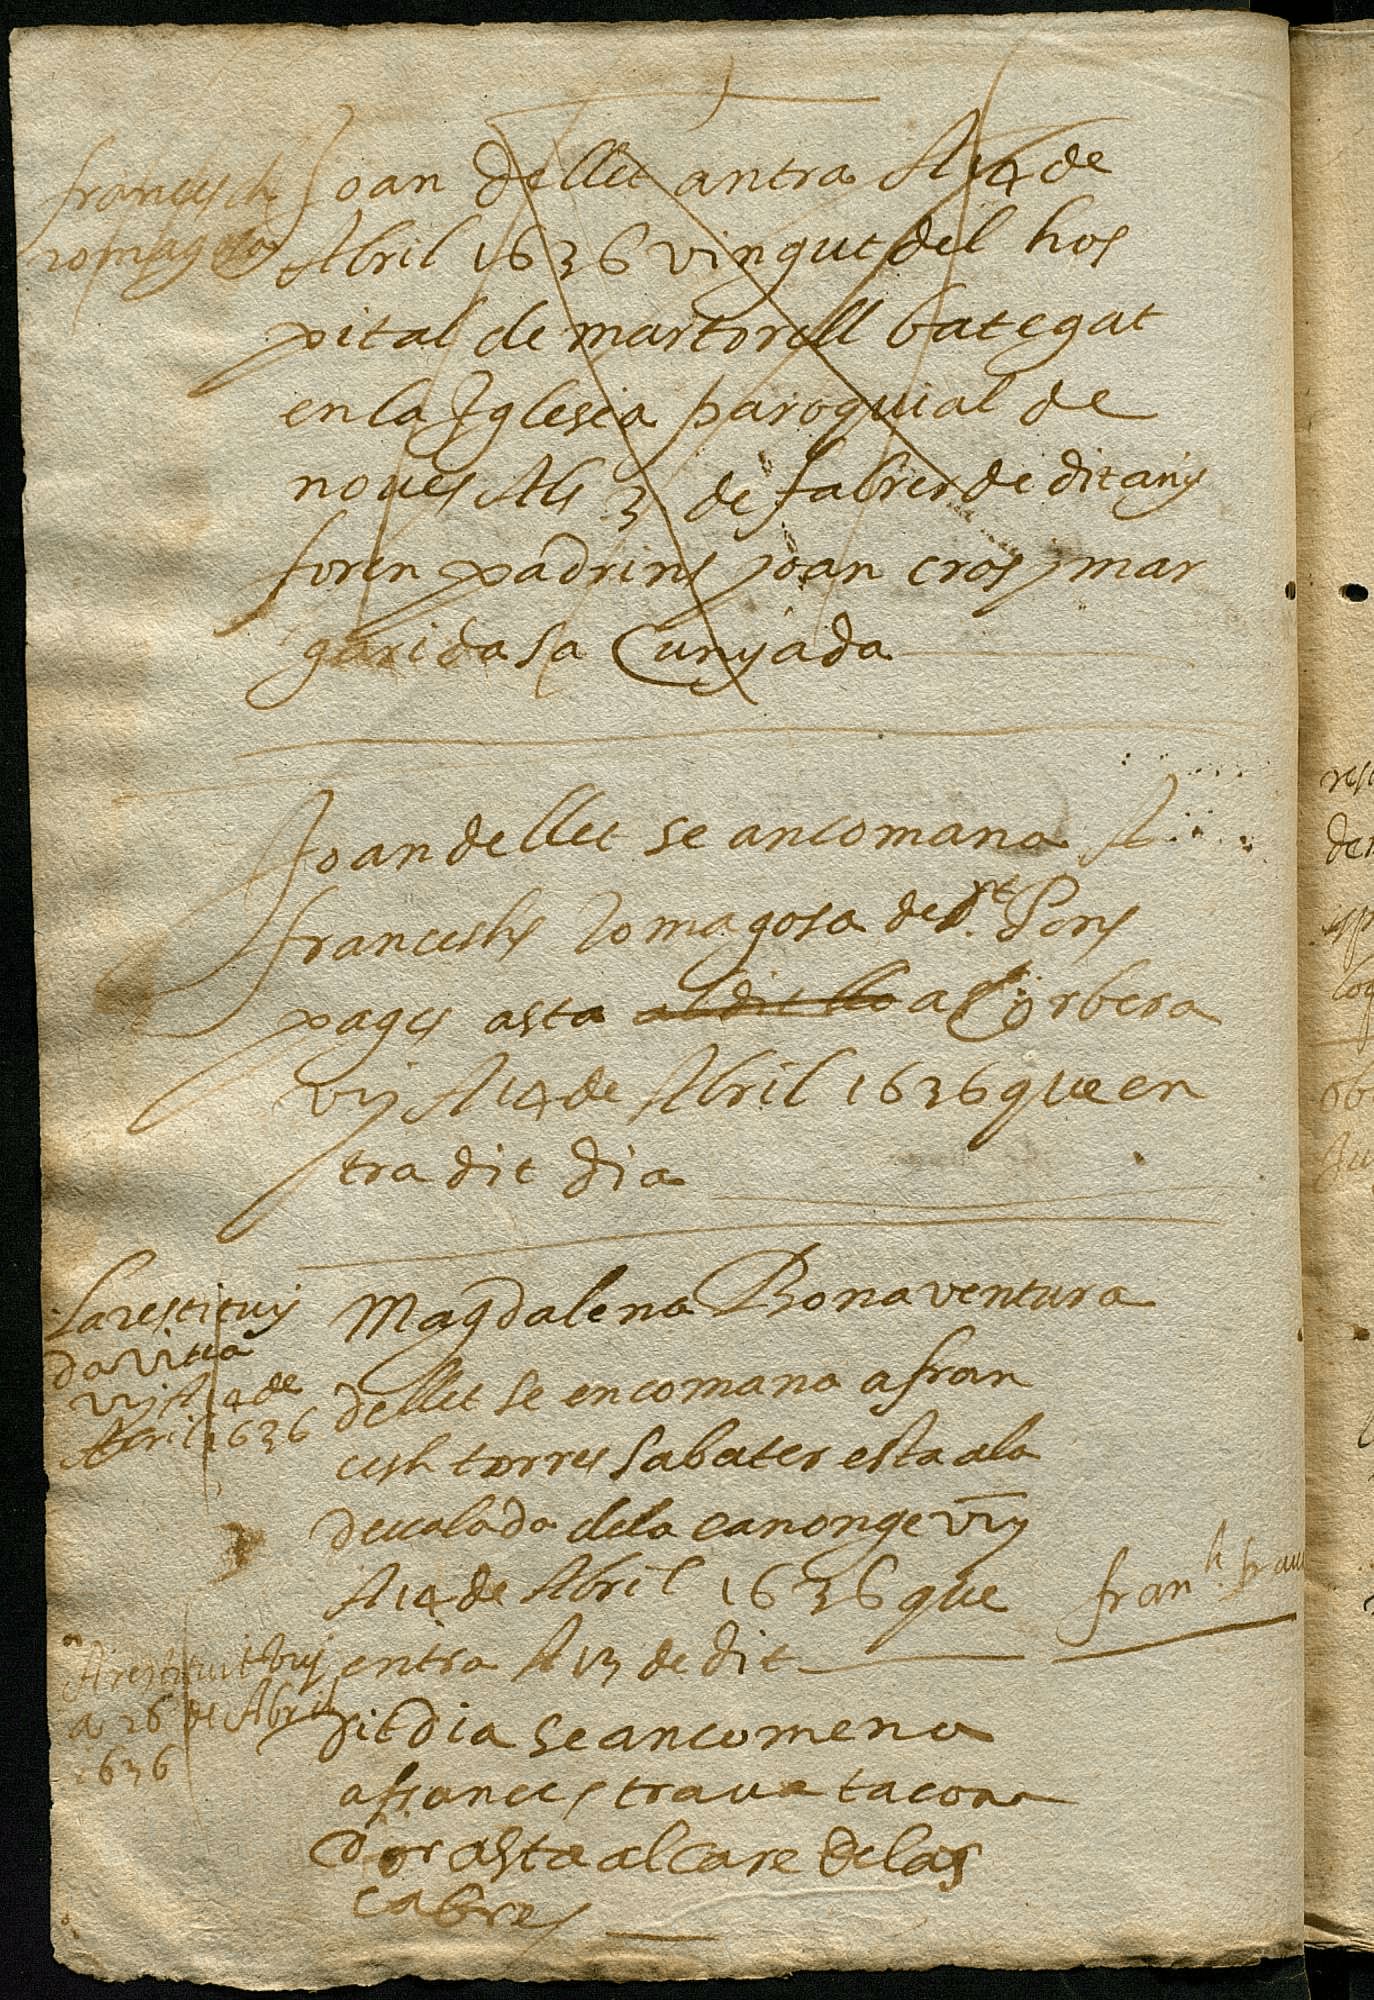 francesch
romagosa
Joan dellet antra A 14 de
Abril 1636 vingut del hos
pital de martorell bategat
en la Iglesia paroquial de
noves Als 3 de fabrer de dit any
foren padrins joan cros j mar
garida sa Cunyada
Joan dellet se ancomana A
francesh romagosa de St. Pons
pages asta al dit llo a Corbera
vuy A 14 de Abril 1636 que en
tra dit dia
La restituy
da vuy A 14 de
Abril 1636
Magdalena Bonaventura
dellet se encomana a fran
cesh torres sabater esta a la
devalada de la canonge vuy
A 14 de Abril 1636 que
entra A 13 de dit
franh. trau
A restituit vuy
a 26 de Abril
1636
dit dia se ancomena
a frances trava tacona
dor asta al care de las
cabres